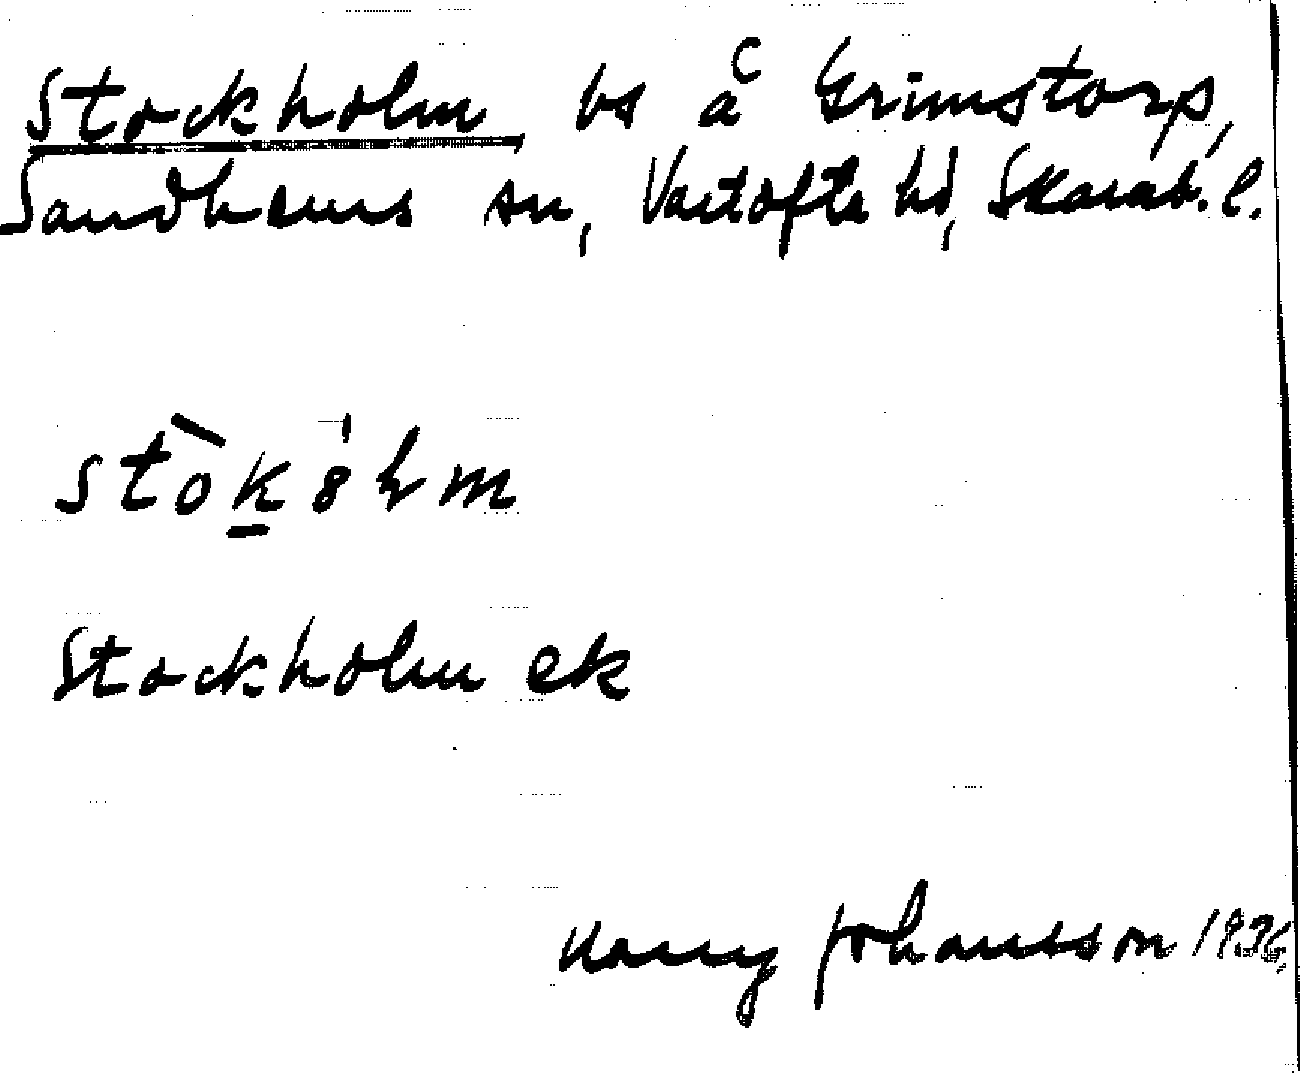 Stockholm bs å Grimstorp,
Sandhems sn, Vartofta hd, Skarab. l.
stòk8hm
Stockholm ek
Harry Johansson 1936.